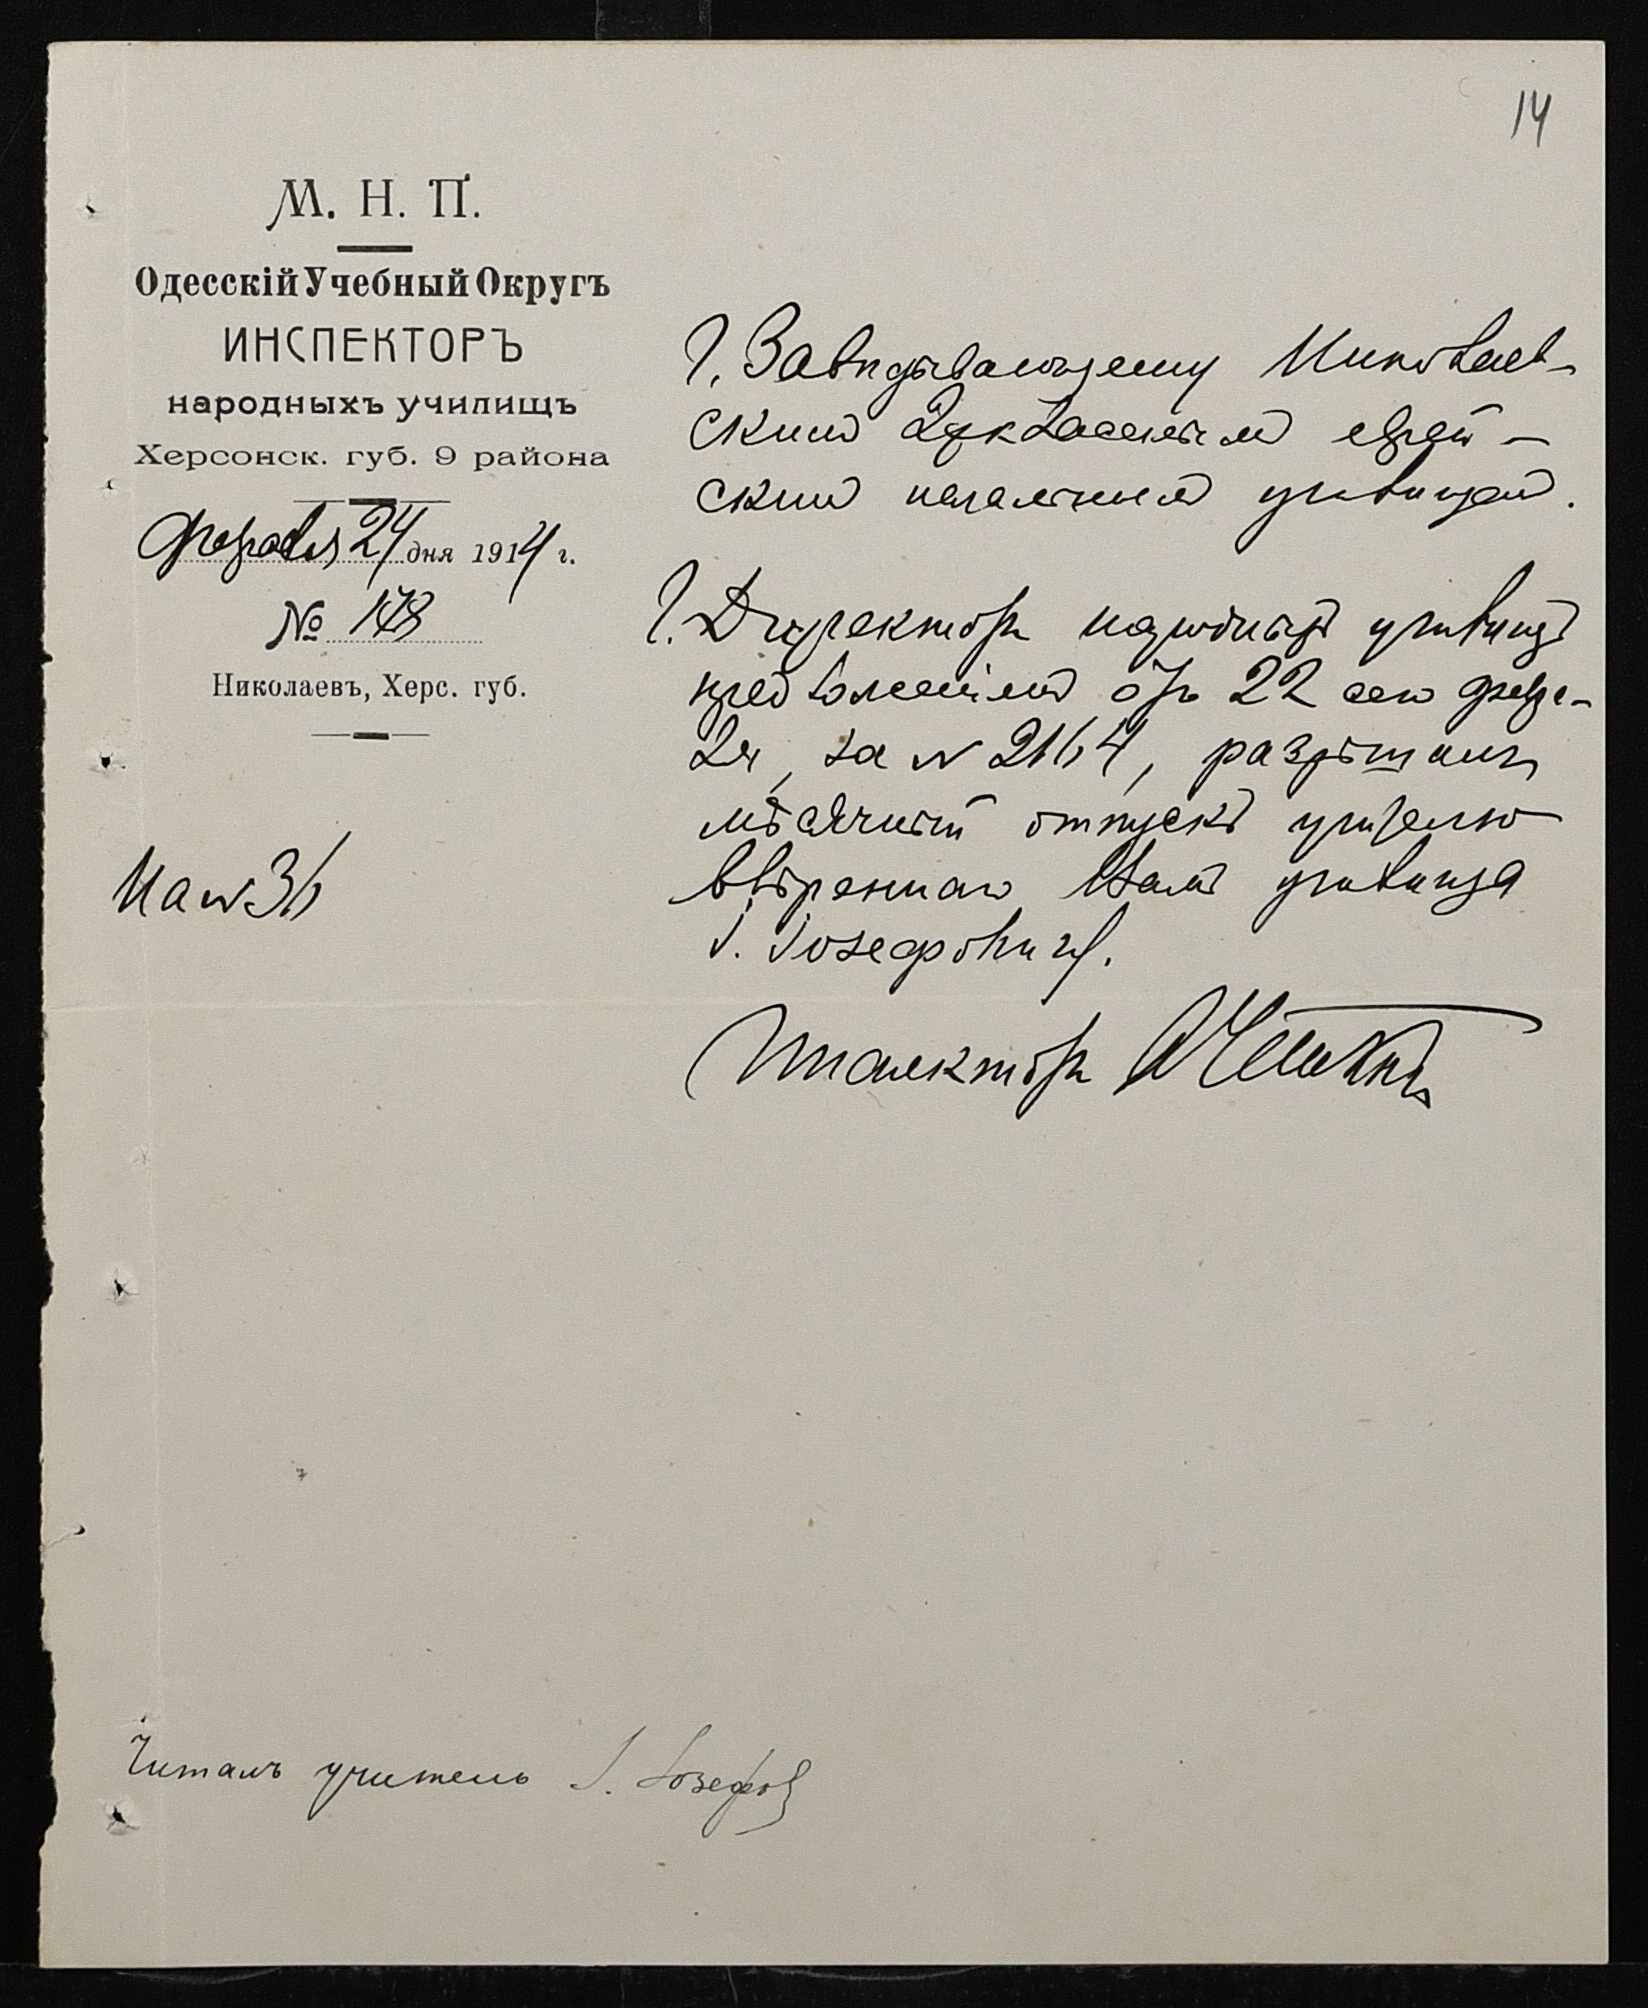 14
М. Н. П.
Одесскій Учебный Округъ
ИНСПЕКТОРЪ
народныхъ училищъ
Херсонск. губ. 9 района
Февраля 24 дня 1914 г.
№ 173
Николаевъ, Херс. губ.
На № 36
Г. Завѣдывающему Николаев-
скимъ 2хкласснымъ еврей-
скимъ начальнымъ училищемъ.
Г. Директоръ народныхъ училищъ
предложеніемъ отъ 22 сего февра-
ля, за № 2164, разрѣшилъ
мѣсячный отпускъ учителю
ввѣреннаго Вамъ училища
І. Іозефовичу.
Инспекторъ
Читалъ учитель І. Іозефов